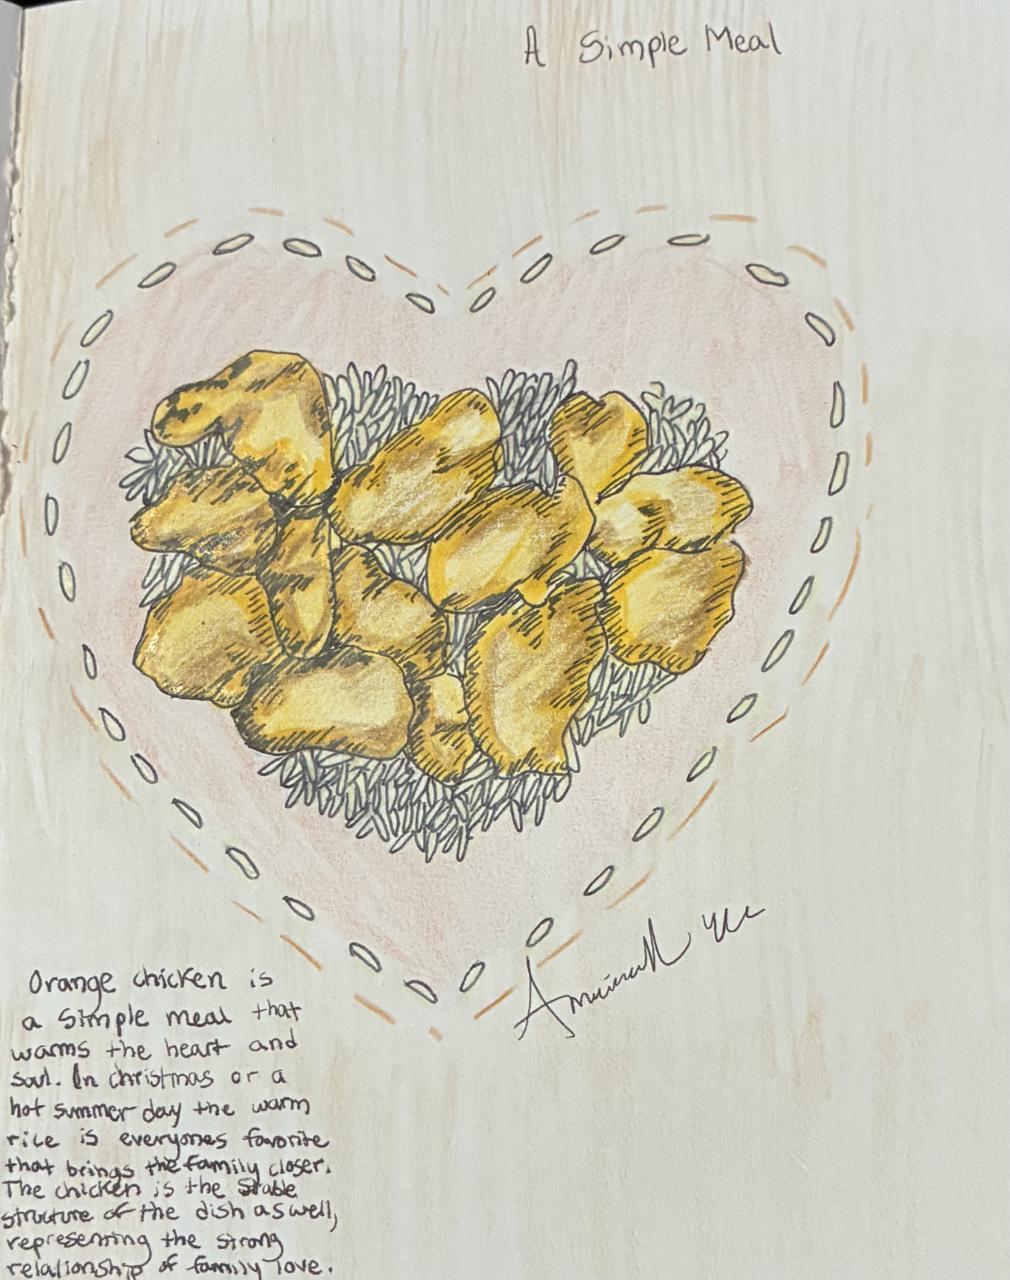 A Simple Meal
Orange chicken is
a simple meal that
warms the heart and
soul. In christmas or a
hot summer day the warm
rice is everyones favorite
that brings the family closer.
The chicken is the stable
structure of the dish as well,
representing the strong
relationship of family love.